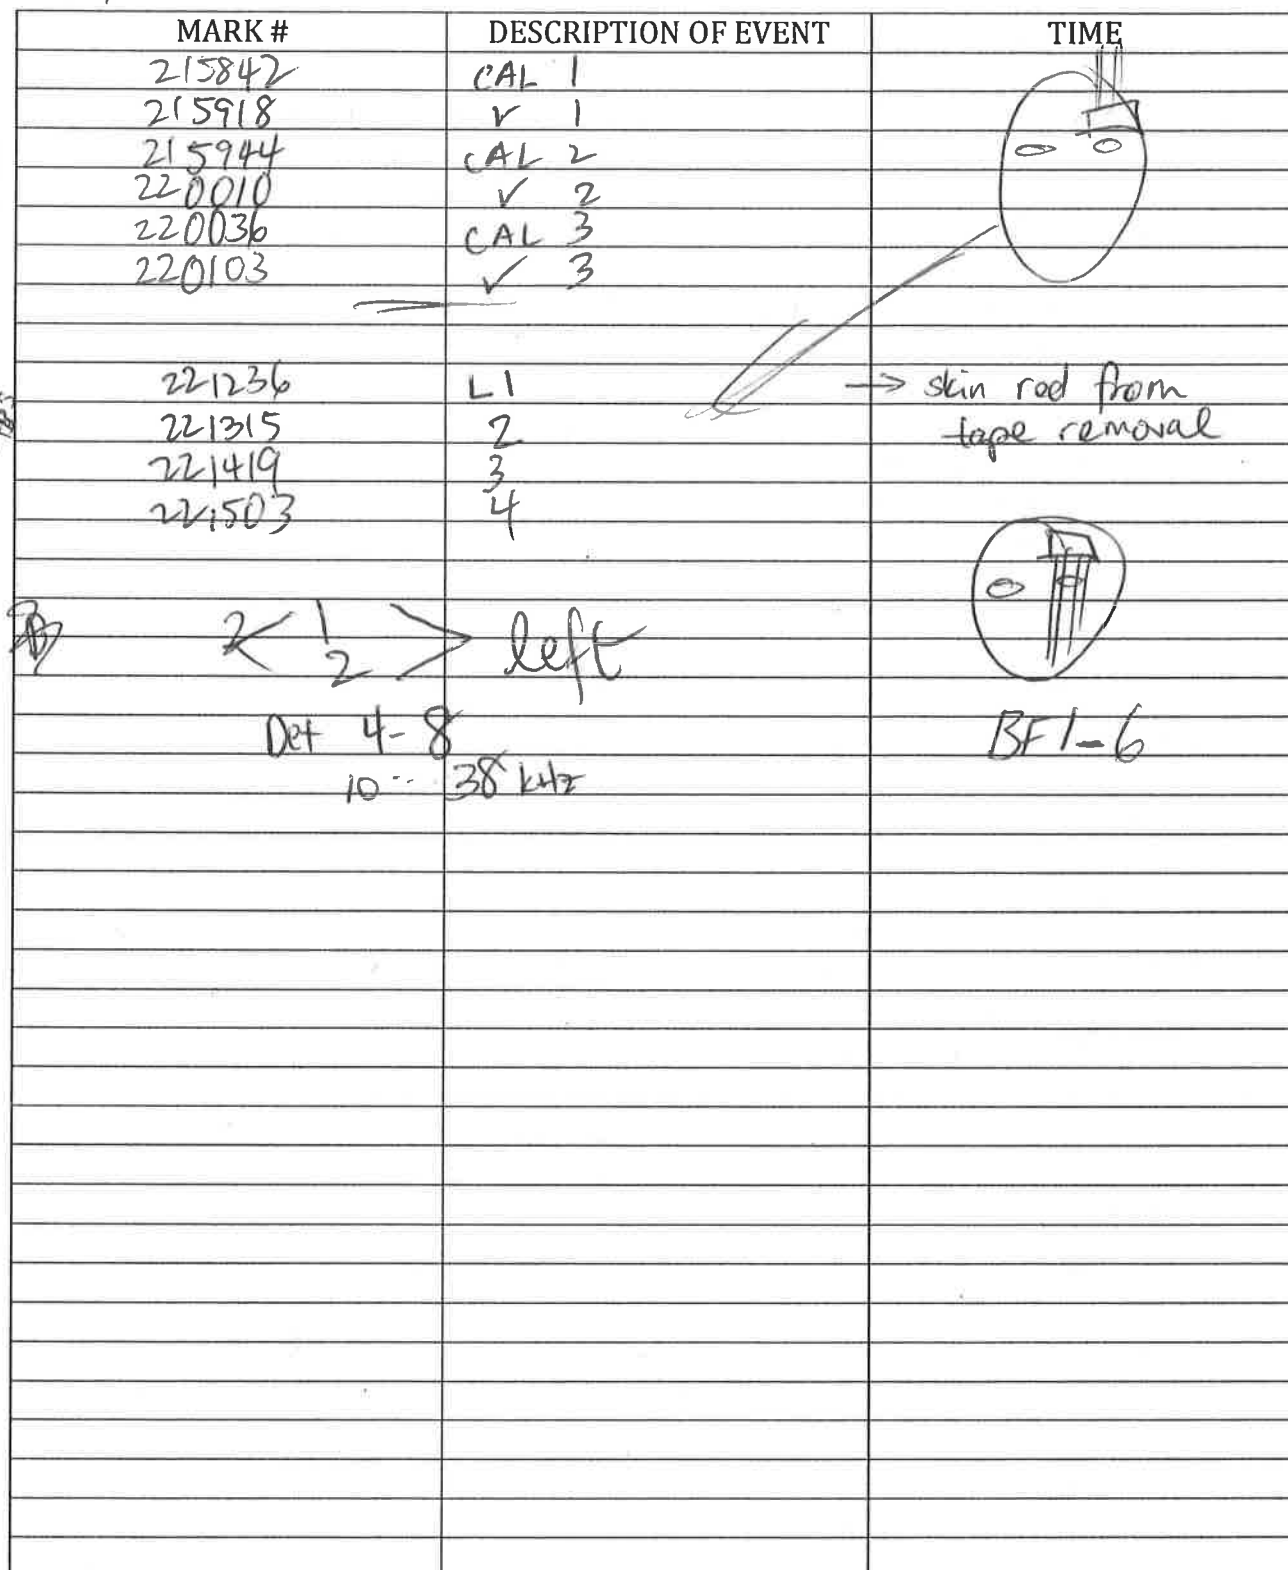 MARK # DESCRIPTION OF EVENT TIME
215842 CAL 1
215918 ✓ 1
215944 CAL 2
220010 ✓ 2
220036 CAL 3
220103 ✓ 3
221236 L1 → skin red from
221315 2 tape removal
221419 3
221503 4
2 < 1 2 > left
Det 4-8 BFI-6
10 -- 38 kHz